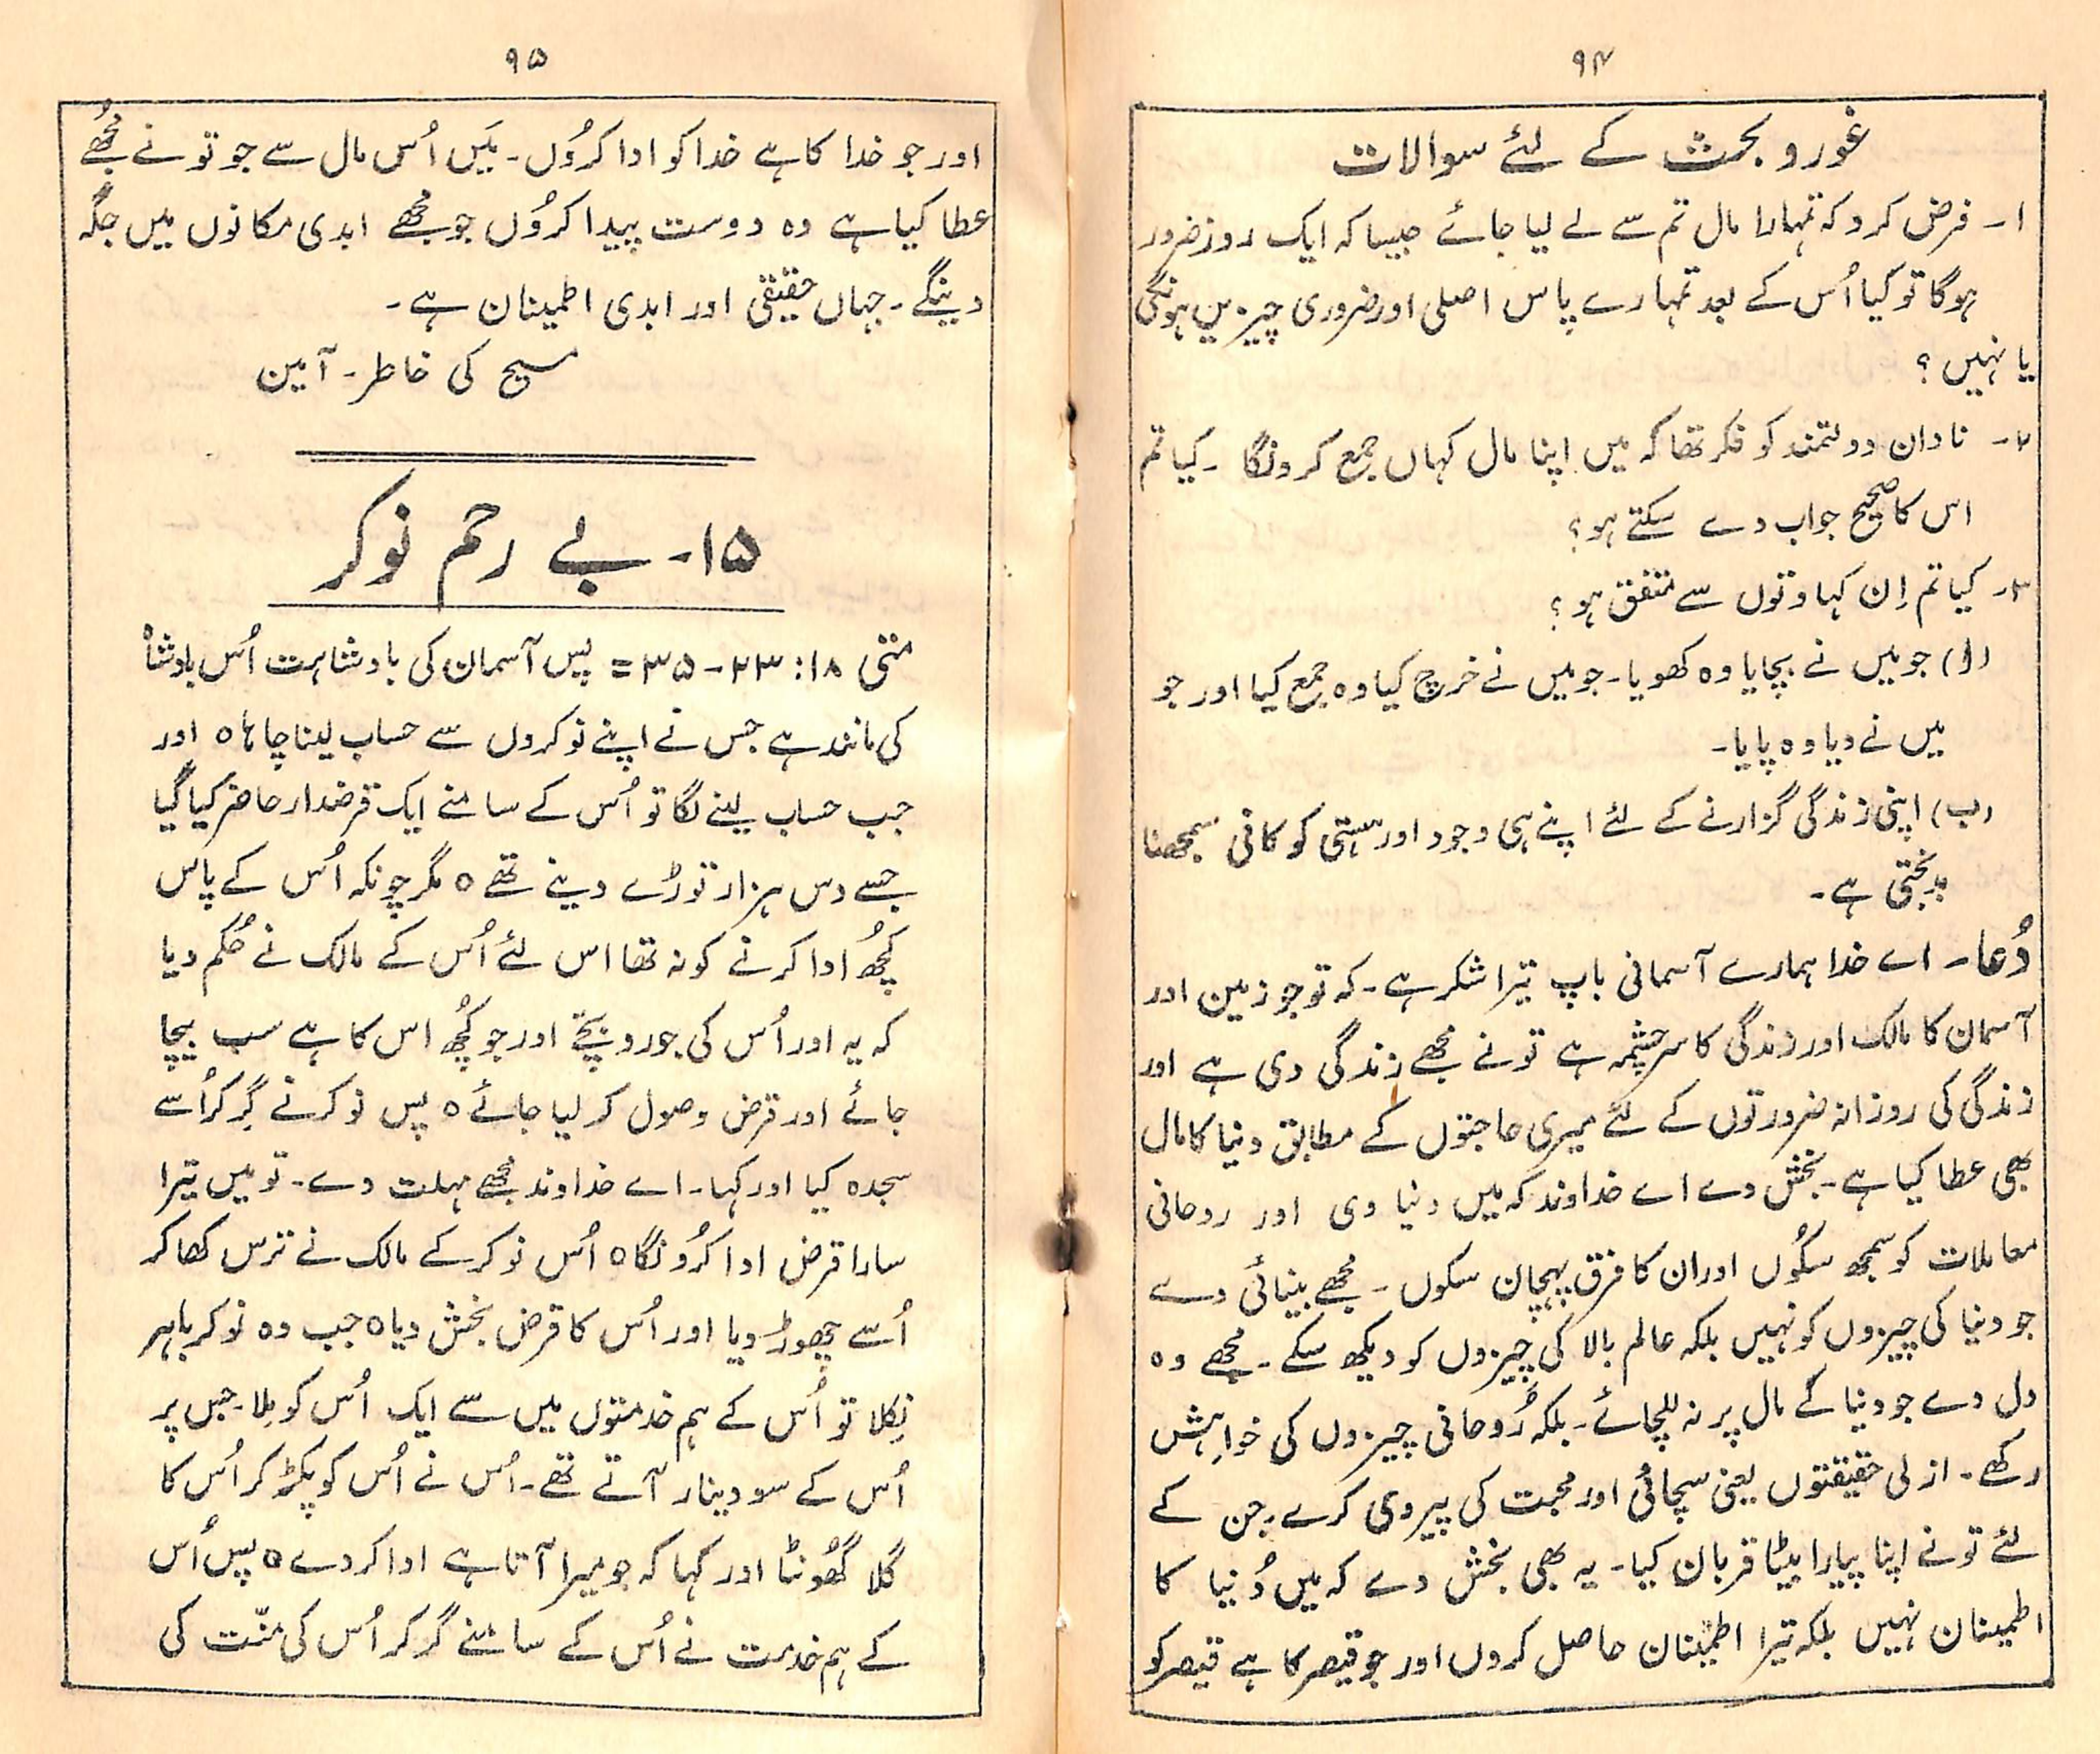 ۹۴
غور و بحث کے لئے سوالات
۱۔ فرض کرو کہ تمہارا مال تم سے لے لیا جائے جیسا کہ ایک روز ضرور
ہوگا تو کیا اُس کے بعد تمہارے پاس اصلی اور ضروری چیزیں ہونگی
یا نہیں ؟
۲۔ نادان دولتمند کو فکر تھا کہ میں اپنا مال کہاں جمع کرونگا ۔ کیا تم
اس کا صحیح جواب دے سکتے ہو؟
۳۔ کیا تم اِن کہاوتوں سے متفق ہو ؟
(ا) جو میں نے بچایا وہ کھویا۔ جو میں نے خرچ کیا وہ جمع کیا اور جو
میں نے دیا وہ پایا۔
(ب) اپنی زندگی گزارنے کے لئے اپنے ہی وجود اور ہستی کو کافی سمجھنا
بدبختی ہے۔
دُعا۔ اے خدا ہمارے آسمانی باپ تیرا شکر ہے۔ کہ تو جو زمین اور
آسمان کا مالک اور زندگی کا سرچشمہ ہے تو نے مجھے زندگی دی ہے اور
زندگی کی روزانہ ضرورتوں کے لئے میری حاجتوں کے مطابق دنیا کا مال
بھی عطا کیا ہے۔ بخش دے اے خداوند کہ میں دنیا وی اور روحانی
معاملات کو سمجھ سکُوں اور ان کا فرق پہچان سکوں ۔ مجھے بینائی دے
جو دنیا کی چیزوں کو نہیں بلکہ عالم بالا کی چیزوں کو دیکھ سکے ۔ مجھے وہ
دل دے جو دنیا کے مال پر نہ للچائے۔ بلکہ رُوحانی چیزوں کی خواہش
رکھے ۔ ازلی حقیقتوں یعنی سچائی اور محبت کی پیروی کرے۔ جن کے
لئے تو نے اپنا پیارا بیٹا قربان کیا۔ یہ بھی بخش دے کہ میں دُنیا کا
اطمینان نہیں بلکہ تیرا اطمینان حاصل کروں اور جو قیصر کا ہے قیصر کو
۹۵
اور جو خدا کا ہے خدا کو ادا کرُوں۔ میَں اُس مال سے جو تو نے مُجھے
عطا کیا ہے وہ دوست پیدا کرُوں جو مجھے ابدی مکانوں میں جگہ
دینگے ۔ جہاں حقیقی اور ابدی اطمینان ہے۔
مسیح کی خاطر۔ آمین
۱۵۔ بے رحم نوکر
متی ۱۸: ۲۳ - ۳۵ = پس آسمان کی بادشاہت اُس بادشاہ
کی مانند ہے جس نے اپنے نوکروں سے حساب لینا چاہا ٥ اور
جب حساب لینے لگا تو اُس کے سامنے ایک قرضدار حاضر کیا گیا
جسے دس ہزار توڑے دینے تھے ٥ مگر چونکہ اُس کے پاس
کچُھ ادا کرنے کو نہ تھا اس لئے اُس کے مالک نے حُکم دیا
کہ یہ اور اُس کی جورو بچّے اور جو کچُھ اس کا ہے سب بیچا
جائے اور قرض وصول کر لیا جائے ٥ پس نوکر نے گِر کر اُسے
سجدہ کیا اور کہا۔ اے خداوند مجھے مہلت دے۔ تو میں تیرا
سارا قرض ادا کرُونگا ٥ اُس نوکر کے مالک نے ترس کھا کر
اُسے چھوڑ دیا اور اُس کا قرض بخش دیا ٥ جب وہ نوکر باہر
نِکلا تو اُس کے ہم خدمتوں میں سے ایک اُس کو مِلا۔ جس پر
اُس کے سو دینار آتے تھے۔ اُس نے اُس کو پکڑ کر اُس کا
گلا گھُونٹا اور کہا کہ جو میرا آتا ہے ادا کر دے ٥ پس اُس
کے ہم خدمت نے اُس کے سامنے گر کر اُس کی منّت کی